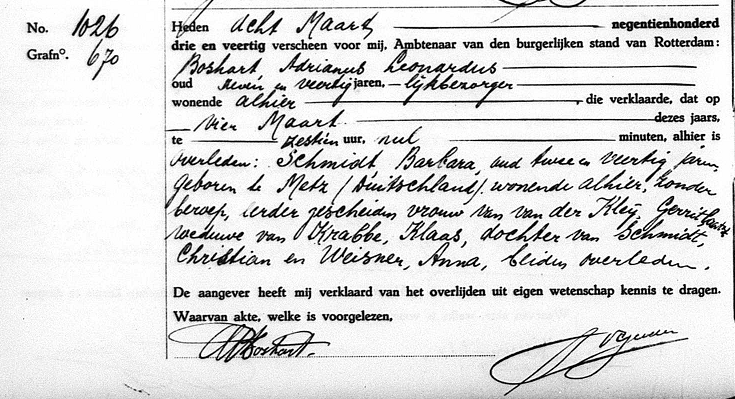 No. 1026
Grafno. 670
Heden Acht Maart negentienhonderd
drie en veertig verscheen voor mij, Ambtenaar van den burgerlijken stand van Rotterdam:
Boshart Adrianus Leonardus
oud zeven en veertig jaren, lijkbezorger
wonende alhier, die verklaarde, dat op
vier Maart dezes jaars,
te zestien uur, nul minuten, alhier is
overleden: Schmidt Barbara, oud twee en veertig jaren,
geboren te Metz (Duitschland), wonende alhier, zonder
beroep, eerder gescheiden vrouw van van der Kleij, Gerrit, laatst
weduwe van Krabbe, Klaas, dochter van Schmidt,
Christian en Weisner, Anna, beiden overleden.
De aangever heeft mij verklaard van het overlijden uit eigen wetenschap kennis te dragen.
Waarvan akte, welke is voorgelezen,
ALBoshart.